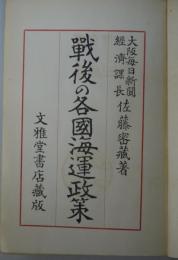 大阪每日新聞
經濟課長 佐藤密藏著
戰後の各國海運政策
文雅堂書店藏版